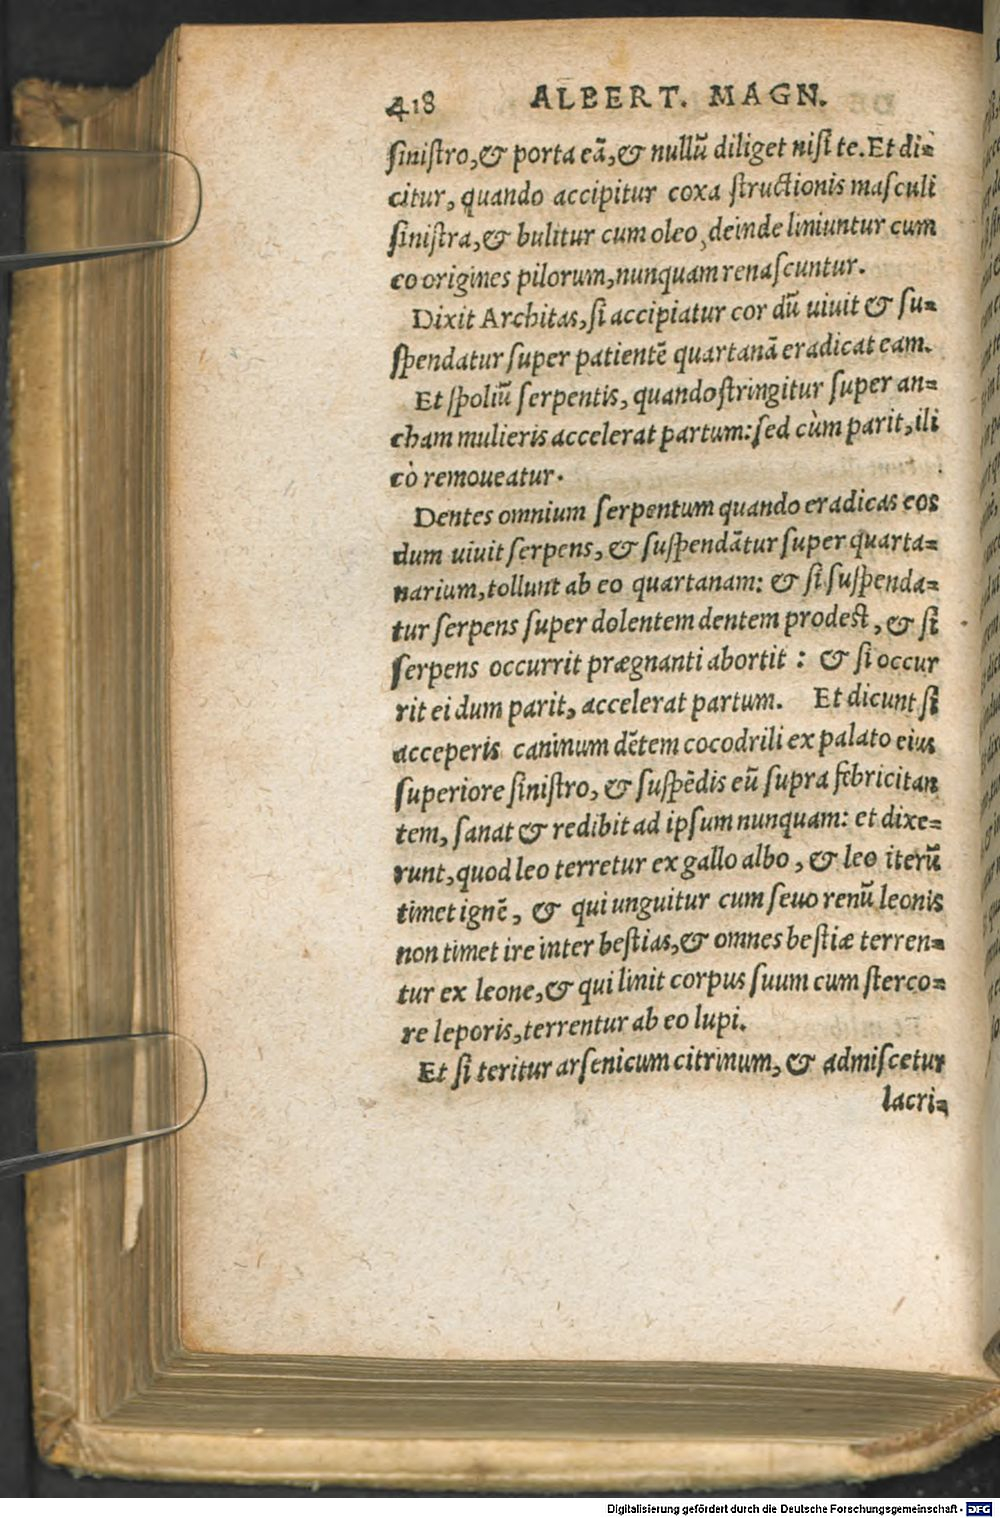 418 ALBERT. MAGN.
siniſtro, & porta eā, & nullū diliget niſi te. Et di⸗
citur, quando accipitur coxa ſtructionis maſculi
ſiniſtra, & bulitur cum oleo, deinde liniuntur cum
eo origines pilorum, nunquam renaſcuntur.
Dixit Architas, ſi accipiatur cor dū uiuit & ſu⸗
ſpendatur ſuper patientē quartanā eradicat eam.
Et ſpoliū ſerpentis, quando ſtringitur ſuper an⸗
cham mulieris accelerat partum: ſed cùm parit, ili
cò remoueatur.
Dentes omnium ſerpentum quando eradicas eos
dum uiuit ſerpens, & ſuſpendātur ſuper quarta⸗
narium, tollunt ab eo quartanam: & ſi ſuſpenda⸗
tur ſerpens ſuper dolentem dentem prodeſt, & ſi
ſerpens occurrit prægnanti abortit: & ſi occur
rit ei dum parit, accelerat partum. Et dicunt ſi
acceperis caninum dētem cocodrili ex palato eius
ſuperiore ſiniſtro, & ſuſpēdis eū ſupra febricitan
tem, ſanat & redibit ad ipſum nunquam: et dixe⸗
runt, quod leo terretur ex gallo albo, & leo iterū
timet ignē, & qui unguitur cum ſeuo renū leonis
non timet ire inter beſtias, & omnes beſtiæ terren⸗
tur ex leone, & qui linit corpus ſuum cum ſterco⸗
re leporis, terrentur ab eo lupi.
Et ſi teritur arſenicum citrinum, & admiſcetur
lacri⸗
Digitalisierung gefördert durch die Deutsche Forschungsgemeinschaft - DFG